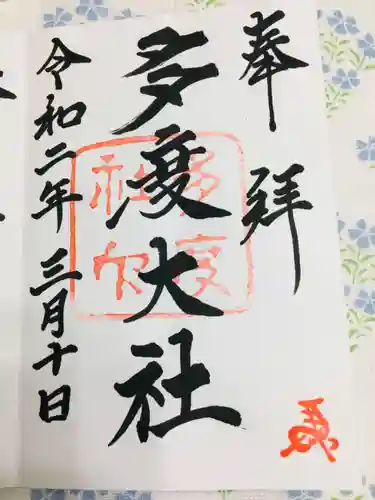 奉拝
多度大社
令和二年三月十日
多度
大社